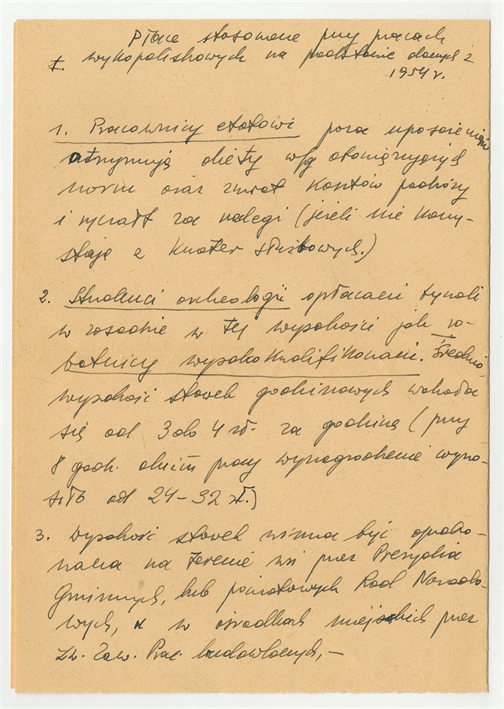 Płace stosowane przy pracach
I. wykopaliskowych na podstawie danych z
1954 r.
1. Pracownicy etatowi poza uposażeniem
otrzymują diety wg obowiązujących
norm oraz zwrot kosztów podróży
i ryczałt za nolegi (jeżeli nie korzy-
stają z kwater służbowych.)
2. Studenci archeologii opłacani byli
w zasadzie w tej wysokości jak ro-
botnicy wysokokwalifikowani. Średnio,
wysokość stawek godzinowych wahała
się od 3 do 4 zł. za godzinę (przy
8 godz. dniu pracy wynagrodzenie wyno-
siło od 24-32 zł.)
3. Wysokość stawek winna być opraco-
wana na terenie wsi przez Prezydia
Gminnych, lub powiatowych Rad Narodo-
wych, w ośrodkach miejskich przez
Zw. Zaw. Prac. budowlanych,-